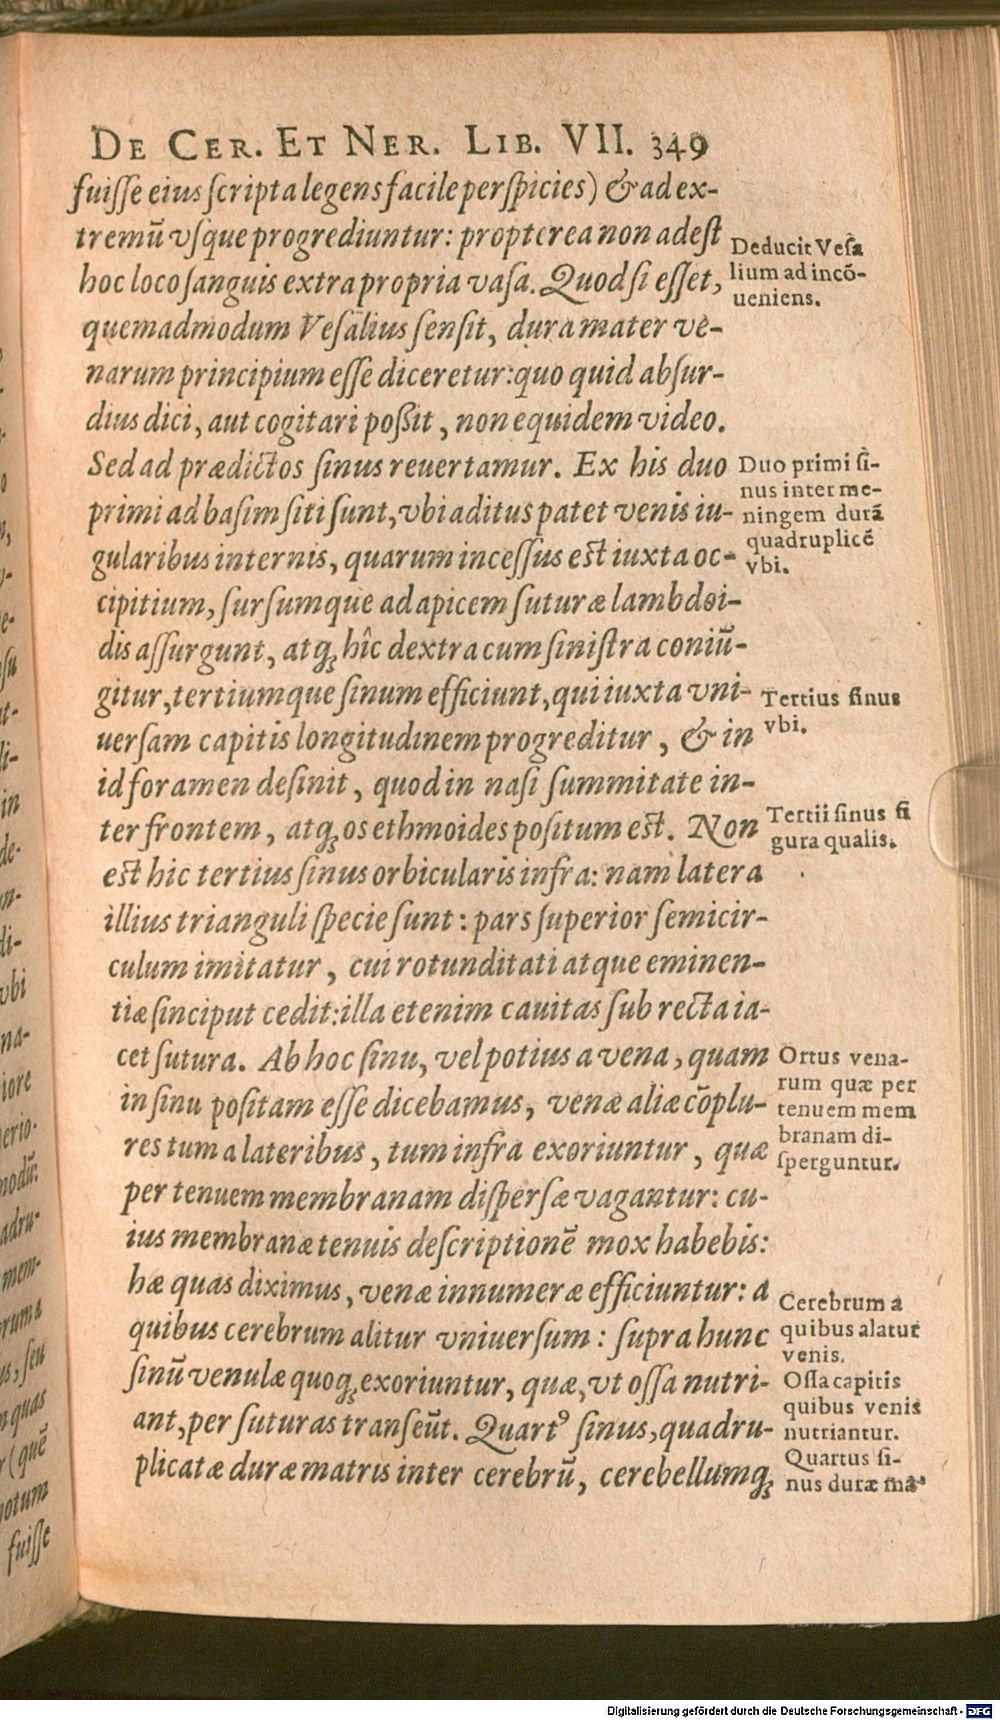 DE CER. ET NER. LIB. VII. 349
fuisse eius scripta legens facile perspicies) & ad ex-
tremũ vsque progrediuntur: propterea non adest
hoc loco sanguis extra propria vasa. Quod si esset,
quemadmodum Vesalius sensit, dura mater ve-
narum principium esse diceretur: quo quid absur-
dius dici, aut cogitari possit, non equidem video.
Sed ad prædictos sinus reuertamur. Ex his duo
primi ad basim siti sunt, vbi aditus patet venis iu-
gularibus internis, quarum incessus est iuxta oc-
cipitium, sursumque ad apicem suturæ lambdoi-
dis assurgunt, atq; hîc dextra cum sinistra coniũ-
gitur, tertiumque sinum efficiunt, qui iuxta vni-
uersam capitis longitudinem progreditur, & in
id foramen desinit, quod in nasi summitate in-
ter frontem, atq; os ethmoides positum est. Non
est hic tertius sinus orbicularis infra: nam latera
illius trianguli specie sunt: pars superior semicir-
culum imitatur, cui rotunditati atque eminen-
tiæ sinciput cedit: illa etenim cauitas sub recta ia-
cet sutura. Ab hoc sinu, vel potius a vena, quam
in sinu positam esse dicebamus, venæ aliæ cõplu-
res tum a lateribus, tum infra exoriuntur, quæ
per tenuem membranam dispersæ vagantur: cu-
ius membranæ tenuis descriptionẽ mox habebis:
hæ quas diximus, venæ innumeræ efficiuntur: a
quibus cerebrum alitur vniuersum: supra hunc
sinũ venulæ quoq; exoriuntur, quæ, vt ossa nutri-
ant, per suturas transeũt. Quartꝰ sinus, quadru-
plicatæ duræ matris inter cerebrũ, cerebellumq;
Deducit Vesa
lium ad incõ-
ueniens.
Duo primi si-
nus inter me-
ningem durã
quadruplicẽ
vbi.
Tertius sinus
vbi.
Tertii sinus fi
gura qualis.
Ortus vena-
rum quæ per
tenuem mem
branam di-
sperguntur.
Cerebrum a
quibus alatur
venis.
Ossa capitis
quibus venis
nutriantur.
Quartus si-
nus duræ ma-
in
vbi
na-
iore
erio-
modũ:
adru-
mem-
orum a
quas
(quẽ
notum
fuisse
Digitalisierung gefördert durch die Deutsche Forschungsgemeinschaft - DFG